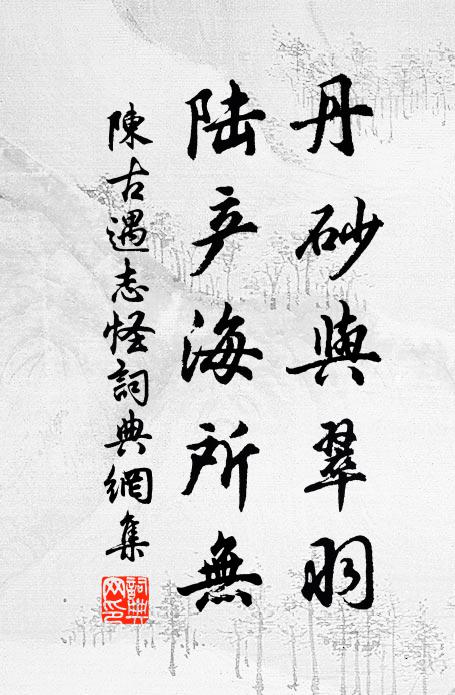 丹砂與翠羽
陆产海所無
陳古遇志怪詞典網集
詞典网印